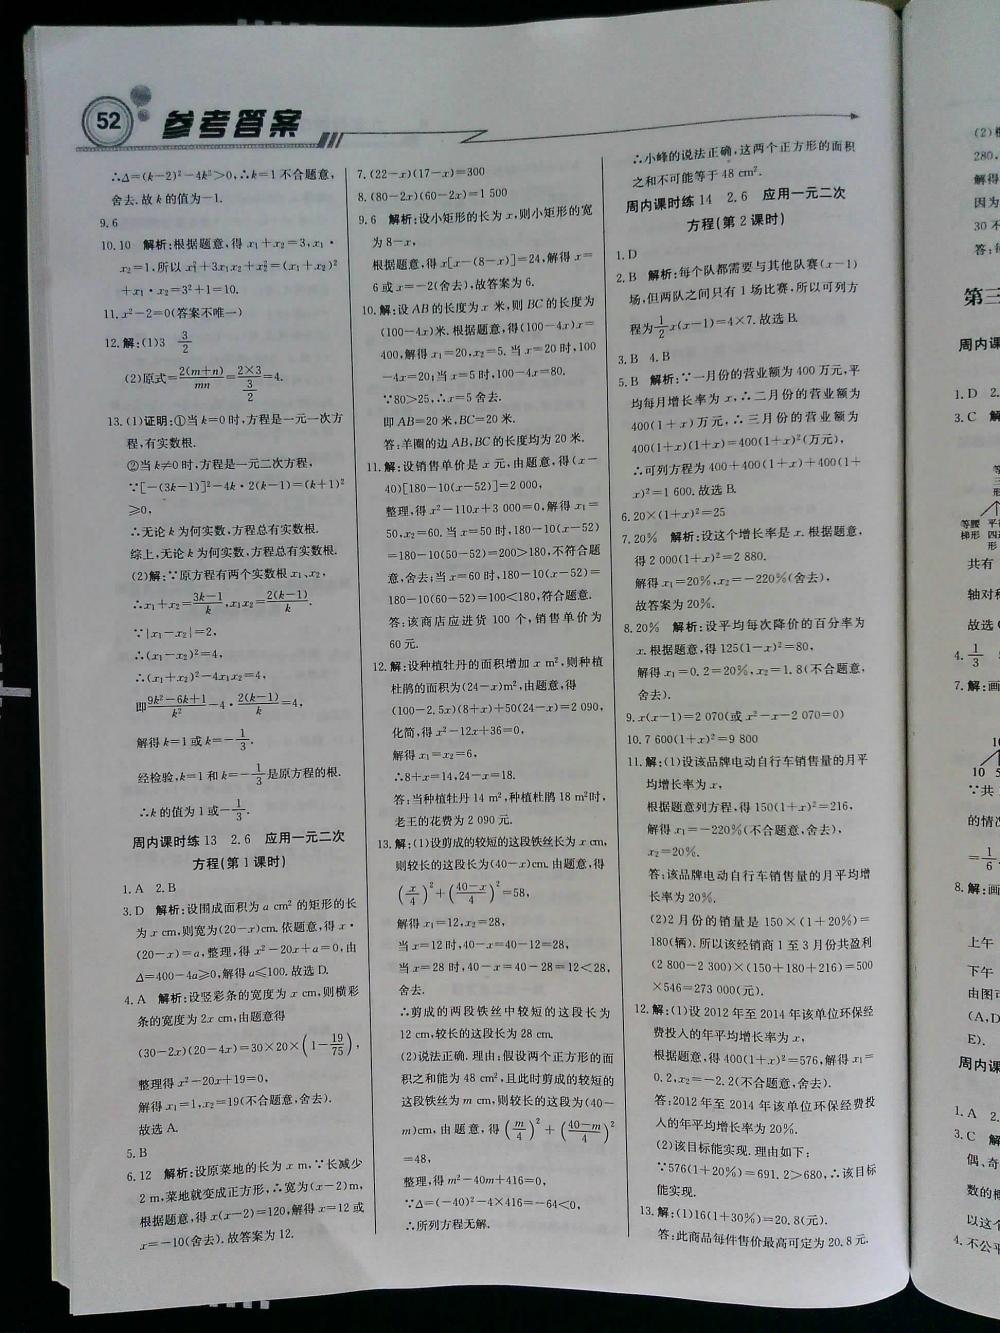 52 参考答案
∴Δ=(k-2)²-4k²>0,∴k=1不合题意,
舍去.故k的值为-1.
9.6
10.10 解析:根据题意,得x₁+x₂=3,x₁·
x₂=1,所以x₁²+3x₁x₂+x₂²=(x₁+x₂)²
+x₁·x₂=3²+1=10.
11.x²-2=0(答案不唯一)
12.解:(1)3 3/2
(2)原式=2(m+n)/mn=2×3/(3/2)=4.
13.(1)证明:①当k=0时,方程是一元一次方
程,有实数根.
②当k≠0时,方程是一元二次方程,
∵[-(3k-1)]²-4k·2(k-1)=(k+1)²
≥0,
∴无论k为何实数,方程总有实数根.
综上,无论k为何实数,方程总有实数根.
(2)解:∵原方程有两个实数根x₁、x₂,
∴x₁+x₂=(3k-1)/k,x₁x₂=2(k-1)/k.
∵|x₁-x₂|=2,
∴(x₁-x₂)²=4,
∴(x₁+x₂)²-4x₁x₂=4,
即(9k²-6k+1)/k²-4·2(k-1)/k=4,
解得k=1或k=-1/3.
经检验,k=1和k=-1/3是原方程的根.
∴k的值为1或-1/3.
周内课时练13 2.6 应用一元二次
方程(第1课时)
1.A 2.B
3.D 解析:设围成面积为a cm²的矩形的长
为x cm,则宽为(20-x)cm.依题意,得x·
(20-x)=a,整理,得x²-20x+a=0,由
Δ=400-4a≥0,解得a≤100.故选D.
4.A 解析:设竖彩条的宽度为x cm,则横彩
条的宽度为2x cm,由题意得
(30-2x)(20-4x)=30×20×(1-19/75),
整理得x²-20x+19=0,
解得x₁=1,x₂=19(不合题意,舍去).
故选A.
5.B
6.12 解析:设原菜地的长为x m,∵长减少
2 m,菜地就变成正方形,∴宽为(x-2)m,
根据题意,得x(x-2)=120,解得x=12或
x=-10(舍去).故答案为12.
7.(22-x)(17-x)=300
8.(80-2x)(60-2x)=1 500
9.6 解析:设小矩形的长为x,则小矩形的宽
为8-x,
根据题意,得x[x-(8-x)]=24,解得x=
6或x=-2(舍去),故答案为6.
10.解:设AB的长度为x米,则BC的长度为
(100-4x)米.根据题意,得(100-4x)x=
400,解得x₁=20,x₂=5.当x=20时,100
-4x=20;当x=5时,100-4x=80.
∵80>25,∴x=5舍去.
即AB=20米,BC=20米.
答:羊圈的边AB,BC的长度均为20米.
11.解:设销售单价是x元,由题意,得(x-
40)[180-10(x-52)]=2 000,
整理,得x²-110x+3 000=0,解得x₁=
50,x₂=60.当x=50时,180-10(x-52)
=180-10(50-52)=200>180,不符合题
意,舍去;当x=60时,180-10(x-52)=
180-10(60-52)=100<180,符合题意.
答:该商店应进货100个,销售单价为
60元.
12.解:设种植牡丹的面积增加x m²,则种植
杜鹃的面积为(24-x)m²,由题意,得
(100-2.5x)(8+x)+50(24-x)=2 090,
化简,得x²-12x+36=0,
解得x₁=x₂=6,
∴8+x=14,24-x=18.
答:当种植牡丹14 m²,种植杜鹃18 m²时,
老王的花费为2 090元.
13.解:(1)设剪成的较短的这段铁丝长为x cm,
则较长的这段长为(40-x)cm.由题意,得
(x/4)²+((40-x)/4)²=58,
解得x₁=12,x₂=28,
当x=12时,40-x=40-12=28,
当x=28时,40-x=40-28=12<28,
舍去.
∴剪成的两段铁丝中较短的这段长为
12 cm,较长的这段长为28 cm.
(2)说法正确.理由:假设两个正方形的面
积之和能为48 cm²,且此时剪成的较短的
这段铁丝为m cm,则较长的这段为(40-
m)cm,由题意,得(m/4)²+((40-m)/4)²
=48,
整理,得m²-40m+416=0,
∵Δ=(-40)²-4×416=-64<0,
∴所列方程无解.
∴小峰的说法正确,这两个正方形的面积
之和不可能等于48 cm².
周内课时练14 2.6 应用一元二次
方程(第2课时)
1.D
2.B 解析:每个队都需要与其他队赛(x-1)
场,但两队之间只有1场比赛,所以可列方
程为1/2x(x-1)=4×7.故选B.
3.B 4.B
5.B 解析:∵一月份的营业额为400万元,平
均每月增长率为x,∴二月份的营业额为
400(1+x)万元,∴三月份的营业额为
400(1+x)(1+x)=400(1+x)²(万元),
∴可列方程为400+400(1+x)+400(1+
x)²=1 600.故选B.
6.20×(1+x)²=25
7.20% 解析:设这个增长率是x.根据题意,
得2 000(1+x)²=2 880.
解得x₁=20%,x₂=-220%(舍去),
故答案为20%.
8.20% 解析:设平均每次降价的百分率为
x.根据题意,得125(1-x)²=80,
解得x₁=0.2=20%,x₂=1.8(不合题意,
舍去).
9.x(x-1)=2 070(或x²-x-2 070=0)
10.7 600(1+x)²=9 800
11.解:(1)设该品牌电动自行车销售量的月平
均增长率为x,
根据题意列方程,得150(1+x)²=216,
解得x₁=-220%(不合题意,舍去),
x₂=20%.
答:该品牌电动自行车销售量的月平均增
长率为20%.
(2)2月份的销量是150×(1+20%)=
180(辆).所以该经销商1至3月份共盈利
(2 800-2 300)×(150+180+216)=500
×546=273 000(元).
12.解:(1)设2012年至2014年该单位环保经
费投入的年平均增长率为x,
根据题意,得400(1+x)²=576,解得x₁=
0.2,x₂=-2.2(不合题意,舍去).
答:2012年至2014年该单位环保经费投
入的年平均增长率为20%.
(2)该目标能实现.理由如下:
∵576(1+20%)=691.2>680,∴该目标
能实现.
13.解:(1)16(1+30%)=20.8(元).
答:此商品每件售价最高可定为20.8元.
280,
解得
因为
30不
第三
周内课
1.D 2.
3.C 解
等腰 平
梯形 四
形
共有
轴对
故选
4.1/3
7.解:画
10
10 5
∵共
的情况
=1/6
8.解:画
上午
下午
由图可
(A,D
E).
周内课
1.A 2.
3.C 解
偶、奇
数的
以这个
4.不公平